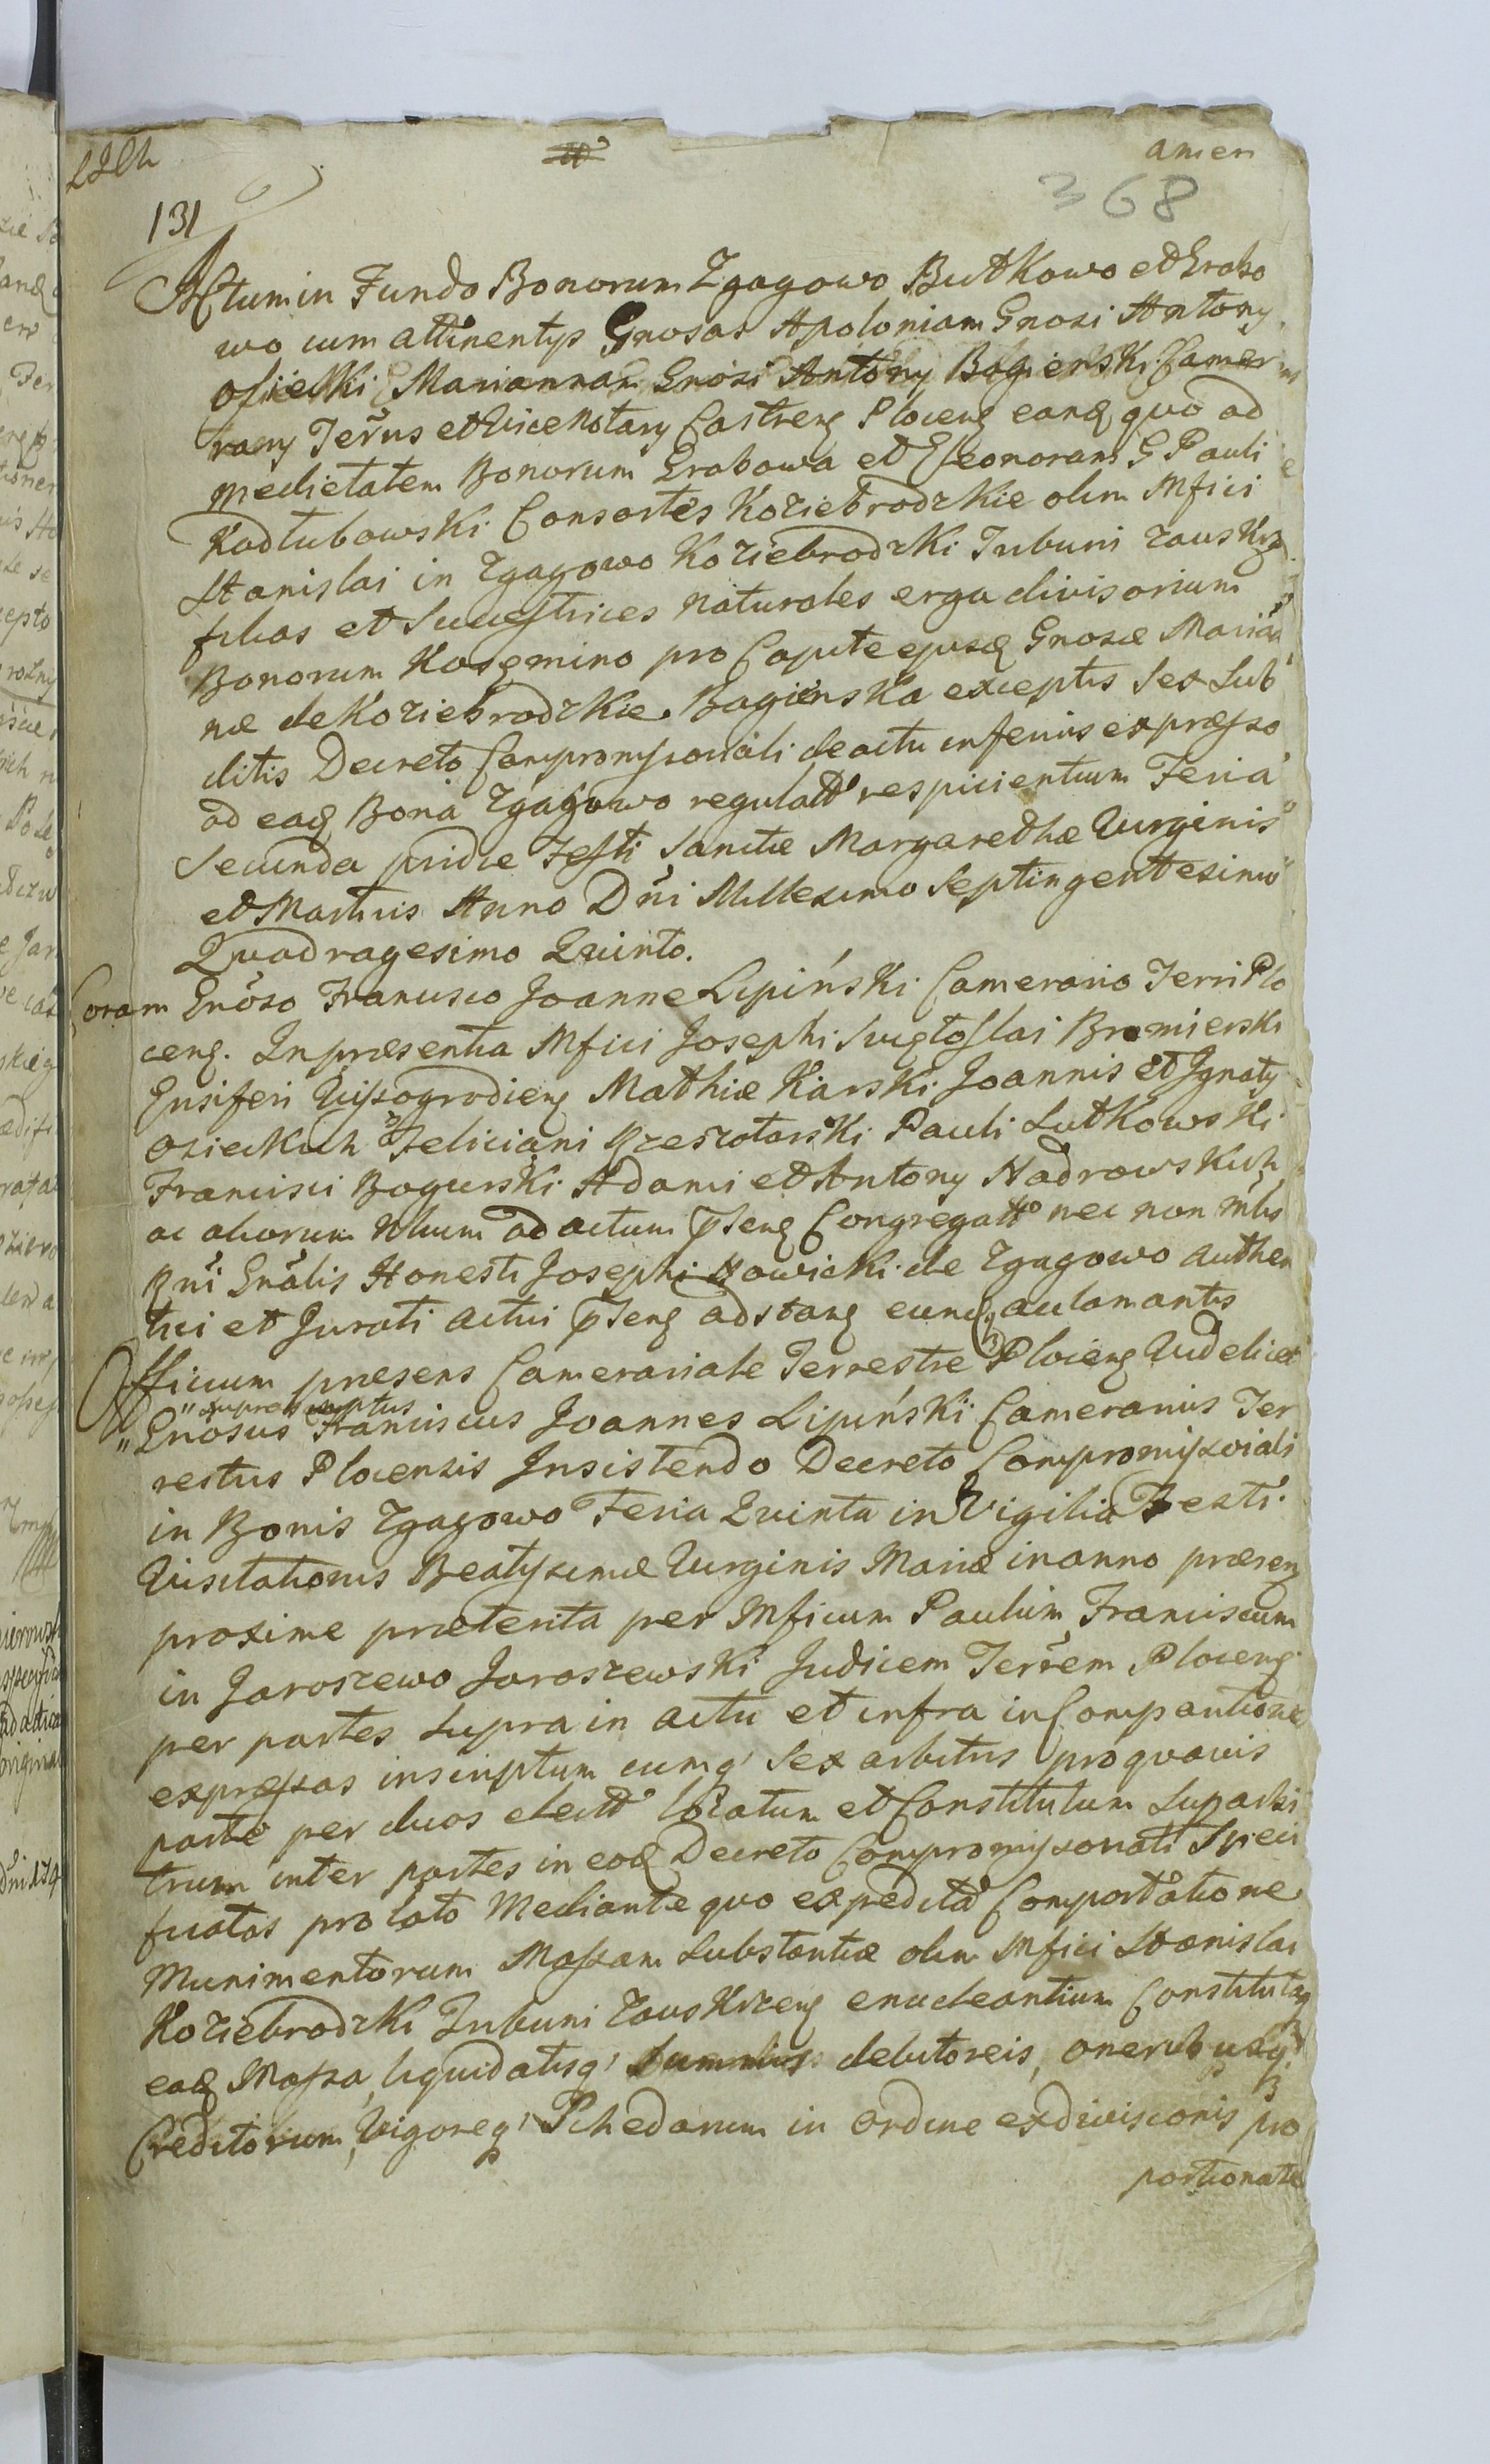 amen
368
131
Actum in Fundo Bonorum Zgagowo Butkowo et Grabo
wo cum attinentys Gnosas Apoloniam Gnosi Antony
Osiecki Mariannam Gnosi Antony Bogienski Came
rary Terrus et Vice Notary Castreng Ploceng eand quo ad
medietatem Bonorum Grabowa et Eleonoram G Pauli
Kadłubowski Consortes Koziebrodzkie olim Mfici
Stanislai in Zgagowo Koziebrodzki Tribuni Zauskrz
filias et Sucestrices naturales erga divisorium
Bonorum Kosemino pro Capite ejusd Gnosæ Marian
næ de Koziebrodzkie Bagienska exceptis sex Sub
ditis Decreto Compromyssoriali de actu inferius expresso
ad ead Bona Zgagowo regulatt respicientium Feria
Secunda pridie Festi Sanctæ Margarethæ Virginis
et Martiris Anno Dni Millesimo Septingentesimo
Quadragesimo Quinto.
Coram Gnoso Francisco Joanne Lipiński Camerario Terri Plo
ceng. In præsentia Mfici Josephi Swiętoslai Bromierski
Ensiferi Wyszogrodieng Mathiæ Karski Joannis et Ignaty
Osieckich Feliciani Krzeszotarski Pauli Lutkowski
Francisci Bogurski Adami et Antony Nadrowskich
ac aliorum Nlium ad actum pseng Congregatto nec non mbs
Rni Gnalis Honesti Josephi Nowicki de Zgagowo authen
tici et Jurati actui pseng adstang eund aclamantis
Officium præsens Camerariale Terrestre Ploceng Videlicet
suprascriptus
Gnosus Franciscus Joannes Lipiński Camerarius Ter
restris Plocensis Insistendo Decreto Compromyssoriali
in Bonis Zgagowo Feria Quinta in Vigilia Festi
Visitationis Beatyssimæ Virginis Mariæ in anno præseng
proxime præterita per Mficum Paulum Franciscum
in Jaroszewo Jaroszewski Judicem Terrem Ploceng
per partes supra in actu et infra in Comparitione
expressas inscriptum cumq' sex arbitris pro quavis
parte per duos electt locatum et Constitutum Suparbi
trum inter partes in eod Decreto Compromyssoriali Speci
ficatas prolato Mediante quo expedita Comportatione
Munimentorum Massam Substantiæ olim Mfici Stanislai
Koziebrodzki Tribuni Zauskrzeng enucleantium Constituta
ead Massa, liquidatisq' Summis debitoreis, oneribusq'
Creditorum, Vigoreq' Schedarum in ordine exdivisionis pro
portionate